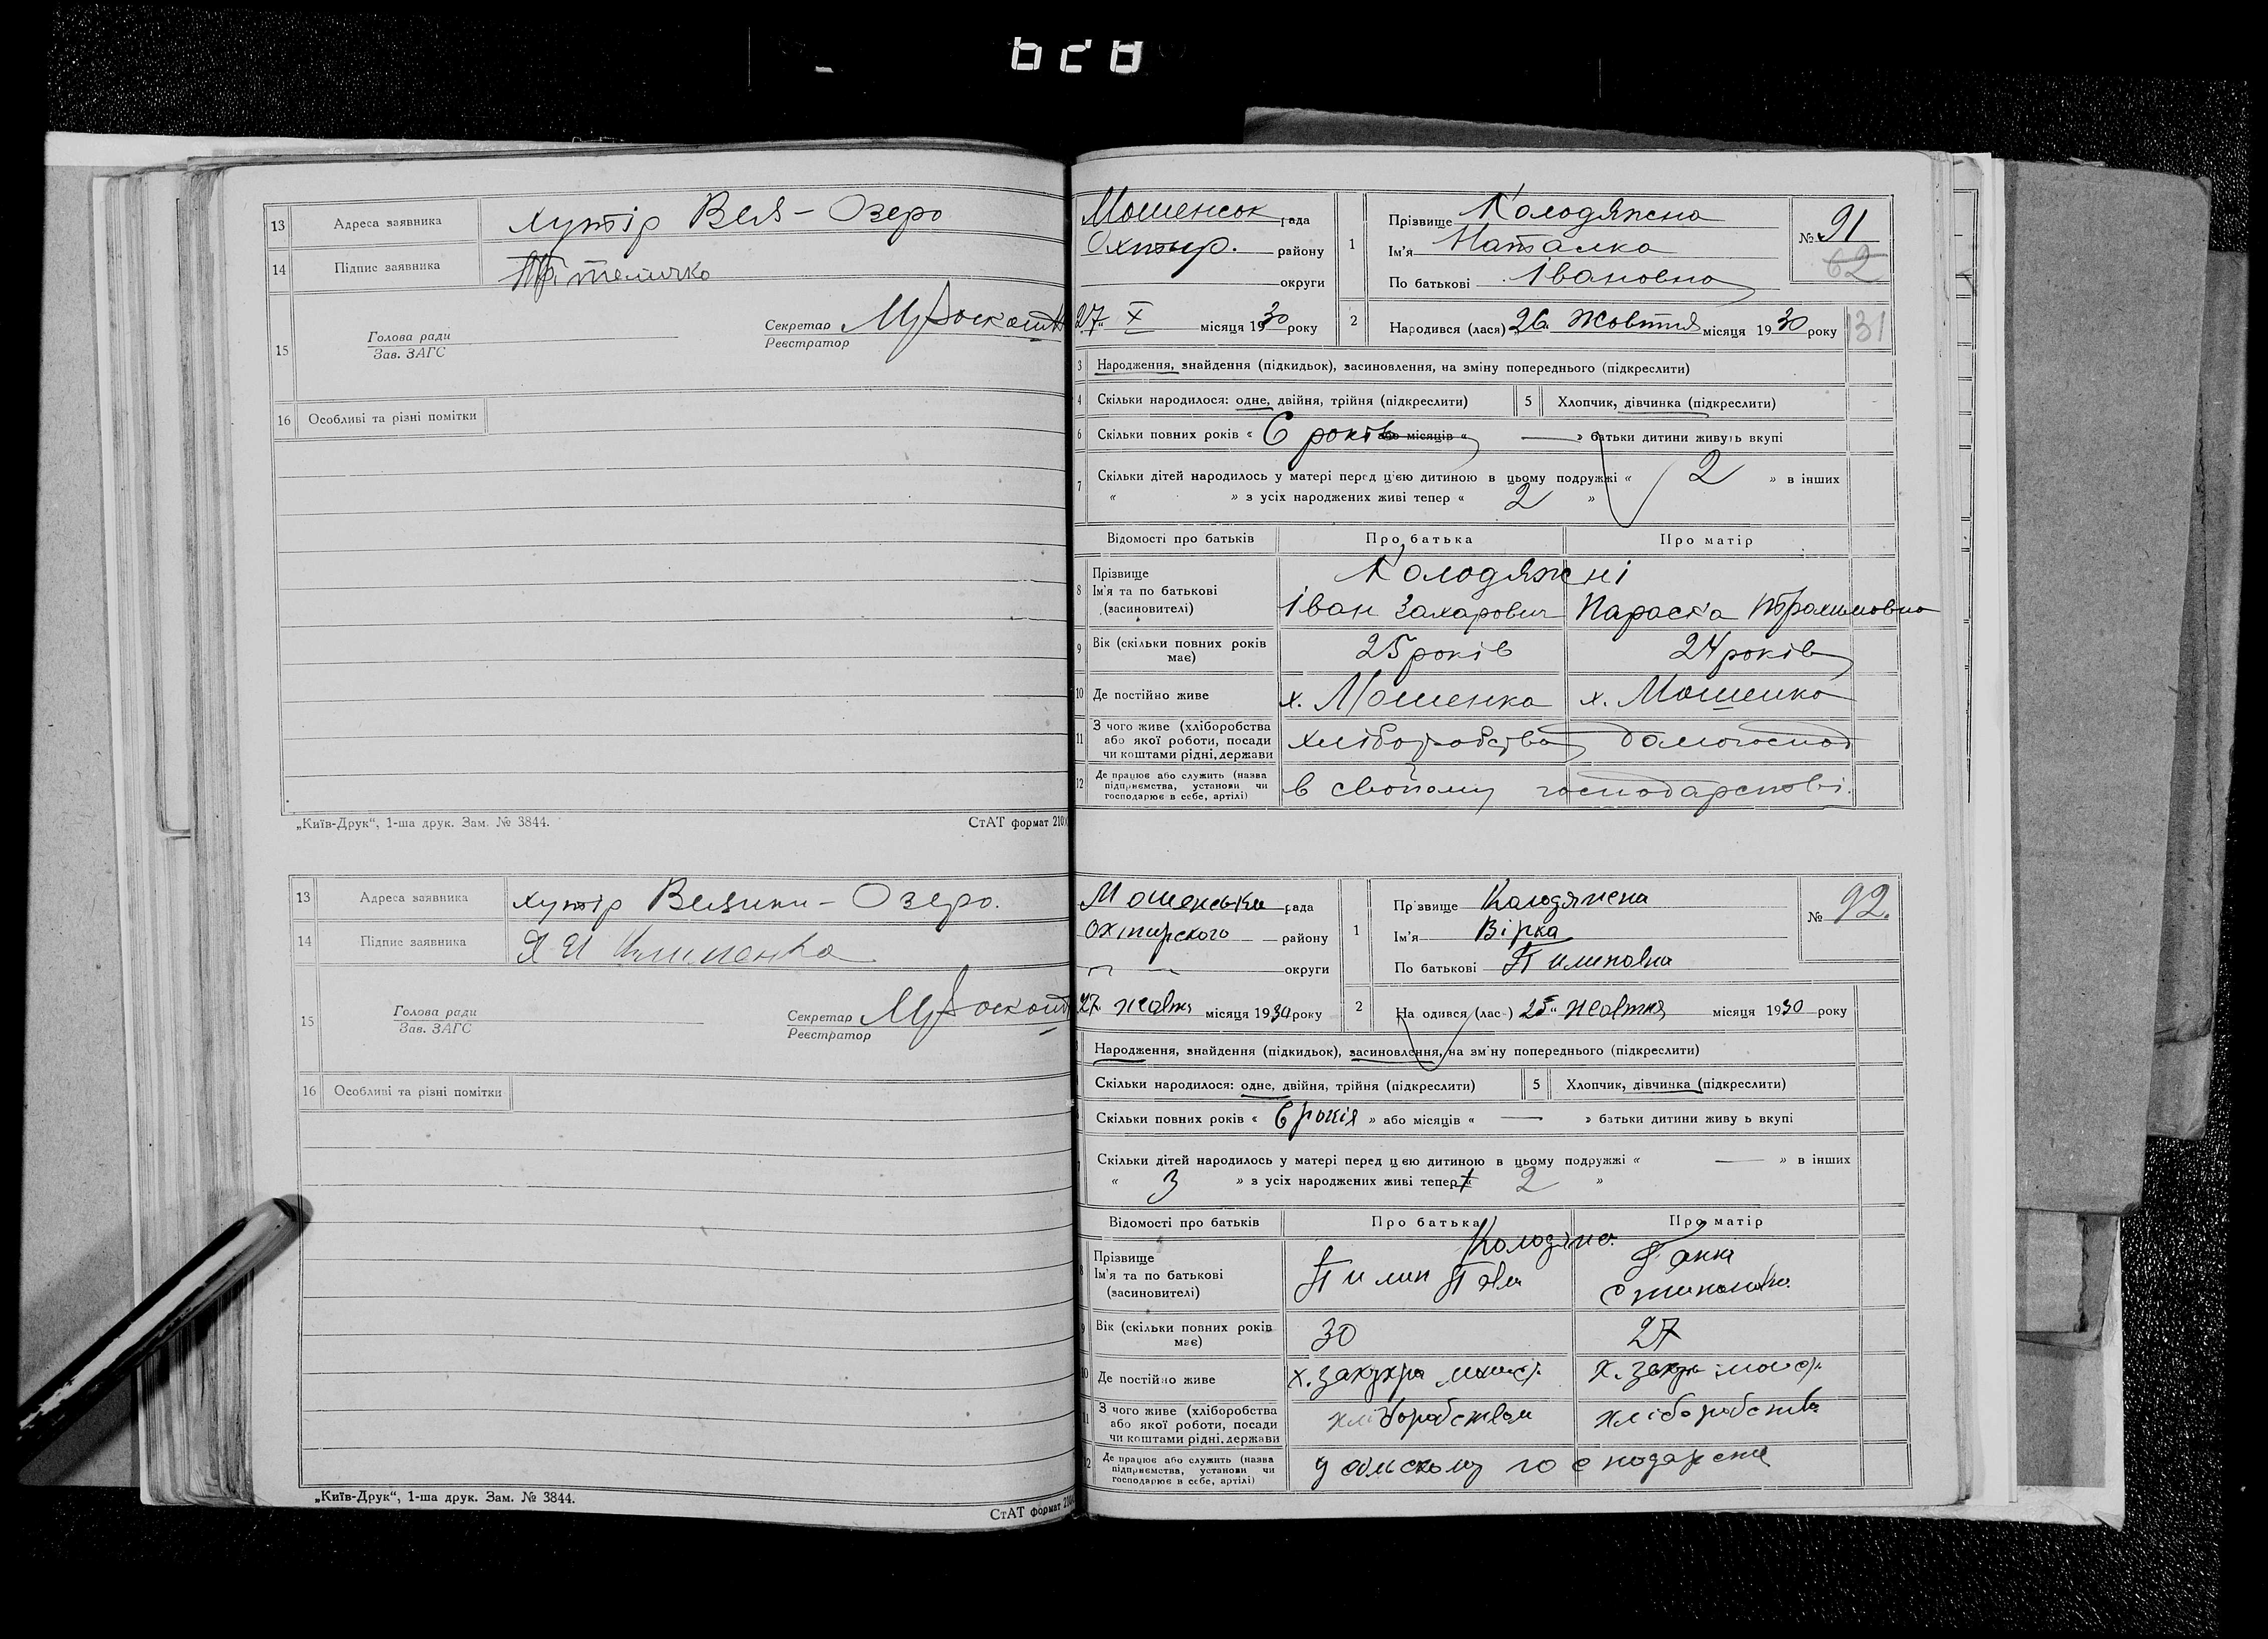 13 Адреса заявника хутір Вел – Озеро
14 Підпис заявника
15 Голова ради
Зав. ЗАГС
Секретар
Реєстратор
16 Особливі та різні помітки
„Київ-Друк“, 1-ша друк. Зам. № 3844. СтАТ формат 210
13 Адреса заявника хутір Велики – Озеро.
14 Підпис заявника
15 Голова ради
Зав. ЗАГС
Секретар
Реєстратор
16 Особливі та різні помітки
„Київ-Друк“, 1-ша друк. Зам. № 3844.
СтАТ формат 210
Мошенськ рада
Охтир. району
округи
27 X місяця 1930 року
1 Прізвище Колодяжна
Ім'я Наталка
По батькові Івановна
№ 91
62
2 Народився (лася) 26. Жовтня місяця 1930 року
131
3 Народження, знайдення (підкидьок), засиновлення, на зміну попереднього (підкреслити)
4 Скільки народилося: одне, двійня, трійня (підкреслити) 5 Хлопчик, дівчинка (підкреслити)
6 Скільки повних років « 6 років або місяців « — » батьки дитини живуть вкупі
7 Скільки дітей народилось у матері перед цією дитиною в цьому подружжі « 2 » в інших
« » з усіх народжених живі тепер « 2 »
Відомості про батьків Про батька Про матір
8 Прізвище Колодяжні
Ім'я та по батькові
(засиновителі) Іван Захарович Параска Трохимовна
9 Вік (скільки повних років має) 25 років 24 років
10 Де постійно живе х. Мошенка х. Мошенка
11 З чого живе (хліборобства
або якої роботи, посади
чи коштами рідні, держави хліборобства домогоспод
12 Де працює або служить (назва
підприємства, установи чи
господарює в себе, артілі) в свойому господарстві.
Мошенська рада
Охтирского району
округи
27 жовтня місяця 1930 року
1 Прізвище Колодяжна
Ім'я Вірка
По батькові Пилиповна
№ 92.
2 Народився (лас-) 25 жовтня місяця 1930 року
Народження, знайдення (підкидьок), засиновлення, на зміну попереднього (підкреслити)
Скільки народилося: одне, двійня, трійня (підкреслити) 5 Хлопчик, дівчинка (підкреслити)
Скільки повних років « 6 років » або місяців « — » батьки дитини живу ь вкупі
Скільки дітей народилось у матері перед цією дитиною в цьому подружжі « — » в інших
« 3 » з усіх народжених живі тепер « 2 »
Відомості про батьків Про батька Про матір
8 Прізвище
Ім'я та по батькові
(засиновителі) Пилип Ганна
9 Вік (скільки повних років має) 30 27
10 Де постійно живе х. х.
11 З чого живе (хліборобства
або якої роботи, посади
чи коштами рідні, держави хліборобством хліборобств
12 Де працює або служить (назва
підприємства, установи чи
господарює в себе, артілі)